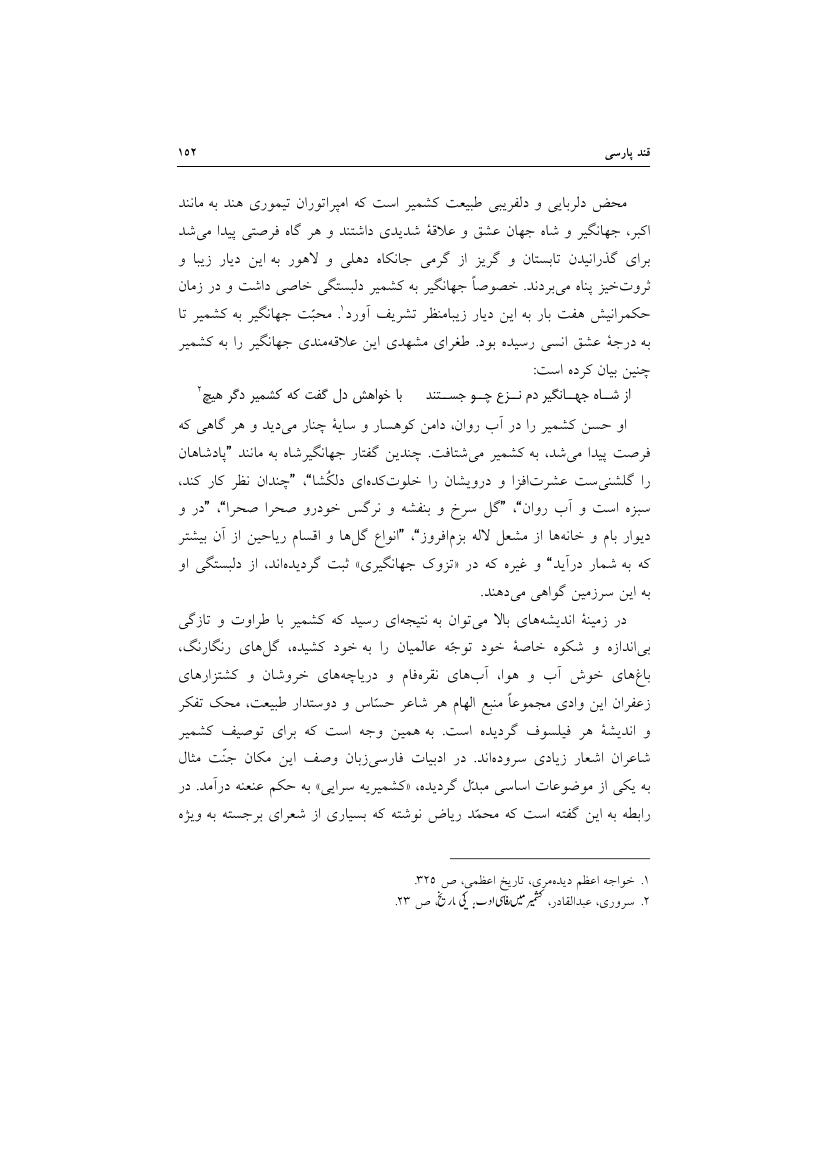 قند پارسی ۱۵۲
محض دلربایی و دلفریبی طبیعت کشمیر است که امپراتوران تیموری هند به مانند
اکبر، جهانگیر و شاه جهان عشق و علاقهٔ شدیدی داشتند و هر گاه فرصتی پیدا می‌شد
برای گذرانیدن تابستان و گریز از گرمی جانکاه دهلی و لاهور به این دیار زیبا و
ثروت‌خیز پناه می‌بردند. خصوصاً جهانگیر به کشمیر دلبستگی خاصی داشت و در زمان
حکمرانیش هفت بار به این دیار زیبامنظر تشریف آورد۱. محبّت جهانگیر به کشمیر تا
به درجهٔ عشق انسی رسیده بود. طغرای مشهدی این علاقه‌مندی جهانگیر را به کشمیر
چنین بیان کرده است:
از شـاه جهـانگیر دم نـزع چـو جسـتند با خواهش دل گفت که کشمیر دگر هیچ۲
او حسن کشمیر را در آب روان، دامن کوهسار و سایهٔ چنار می‌دید و هر گاهی که
فرصت پیدا می‌شد، به کشمیر می‌شتافت. چندین گفتار جهانگیرشاه به مانند ”پادشاهان
را گلشنی‌ست عشرت‌افزا و درویشان را خلوت‌کده‌ای دلکُشا“، ”چندان نظر کار کند،
سبزه است و آب روان“، ”گل سرخ و بنفشه و نرگس خودرو صحرا صحرا“، ”در و
دیوار بام و خانه‌ها از مشعل لاله بزم‌افروز“، ”انواع گل‌ها و اقسام ریاحین از آن بیشتر
که به شمار درآید“ و غیره که در «تزوک جهانگیری» ثبت گردیده‌اند، از دلبستگی او
به این سرزمین گواهی می‌دهند.
در زمینهٔ اندیشه‌های بالا می‌توان به نتیجه‌ای رسید که کشمیر با طراوت و تازگی
بی‌اندازه و شکوه خاصهٔ خود توجّه عالمیان را به خود کشیده، گل‌های رنگارنگ،
باغ‌های خوش آب و هوا، آب‌های نقره‌فام و دریاچه‌های خروشان و کشتزارهای
زعفران این وادی مجموعاً منبع الهام هر شاعر حسّاس و دوستدار طبیعت، محک تفکر
و اندیشهٔ هر فیلسوف گردیده است. به همین وجه است که برای توصیف کشمیر
شاعران اشعار زیادی سروده‌اند. در ادبیات فارسی‌زبان وصف این مکان جنّت مثال
به یکی از موضوعات اساسی مبدّل گردیده، «کشمیریه سرایی» به حکم عنعنه درآمد. در
رابطه به این گفته است که محمّد ریاض نوشته که بسیاری از شعرای برجسته به ویژه
۱. خواجه اعظم دیده‌مری، تاریخ اعظمی، ص ۳۲۵.
۲. سروری، عبدالقادر، کشمیر میں فارسی ادب کی تاریخ، ص ۲۳.